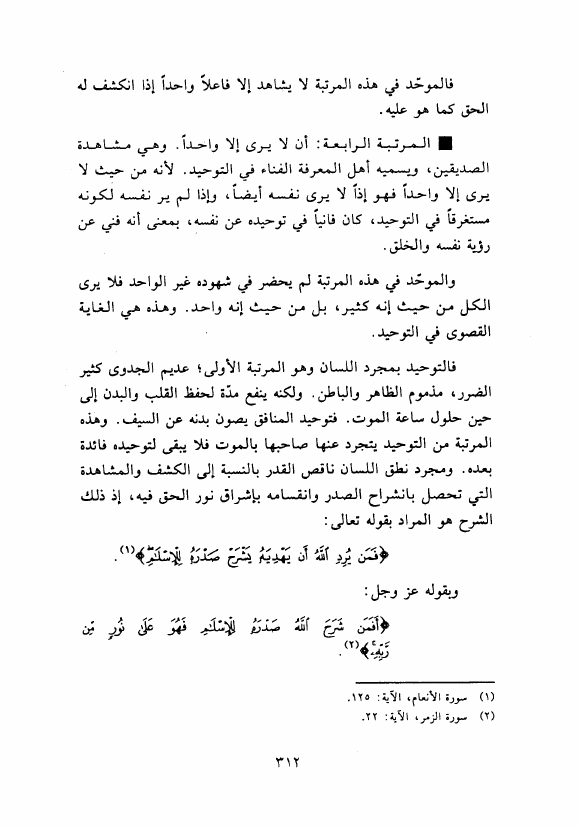 فالموحّد في هذه المرتبة لا يشاهد إلا فاعلاً واحداً إذا انكشف له
الحق كما هو عليه.
■ المرتبة الرابعة: أن لا يرى إلا واحداً. وهي مشاهدة
الصديقين، ويسميه أهل المعرفة الفناء في التوحيد. لأنه من حيث لا
يرى إلا واحداً فهو إذاً لا يرى نفسه أيضاً، وإذا لم ير نفسه لكونه
مستغرقاً في التوحيد، كان فانياً في توحيده عن نفسه، بمعنى أنه فني عن
رؤية نفسه والخلق.
والموحّد في هذه المرتبة لم يحضر في شهوده غير الواحد فلا يرى
الكل من حيث إنه كثير، بل من حيث إنه واحد. وهذه هي الغاية
القصوى في التوحيد.
فالتوحيد بمجرد اللسان وهو المرتبة الأولى؛ عديم الجدوى كثير
الضرر، مذموم الظاهر والباطن. ولكنه ينفع مدّة لحفظ القلب والبدن إلى
حين حلول ساعة الموت. فتوحيد المنافق يصون بدنه عن السيف. وهذه
المرتبة من التوحيد يتجرد عنها صاحبها بالموت فلا يبقى لتوحيده فائدة
بعده. ومجرد نطق اللسان ناقص القدر بالنسبة إلى الكشف والمشاهدة
التي تحصل بانشراح الصدر وانقسامه بإشراق نور الحق فيه، إذ ذلك
الشرح هو المراد بقوله تعالى:
﴿فَمَن يُرِدِ ٱللَّهُ أَن يَهْدِيَهُۥ يَشْرَحْ صَدْرَهُۥ لِلْإِسْلَٰمِۖ﴾(١).
وبقوله عز وجل:
﴿أَفَمَن شَرَحَ ٱللَّهُ صَدْرَهُۥ لِلْإِسْلَٰمِ فَهُوَ عَلَىٰ نُورٍ مِّن
رَّبِّهِۦۚ﴾(٢).
(١) سورة الأنعام، الآية: ١٢٥.
(٢) سورة الزمر، الآية: ٢٢.
٣١٢